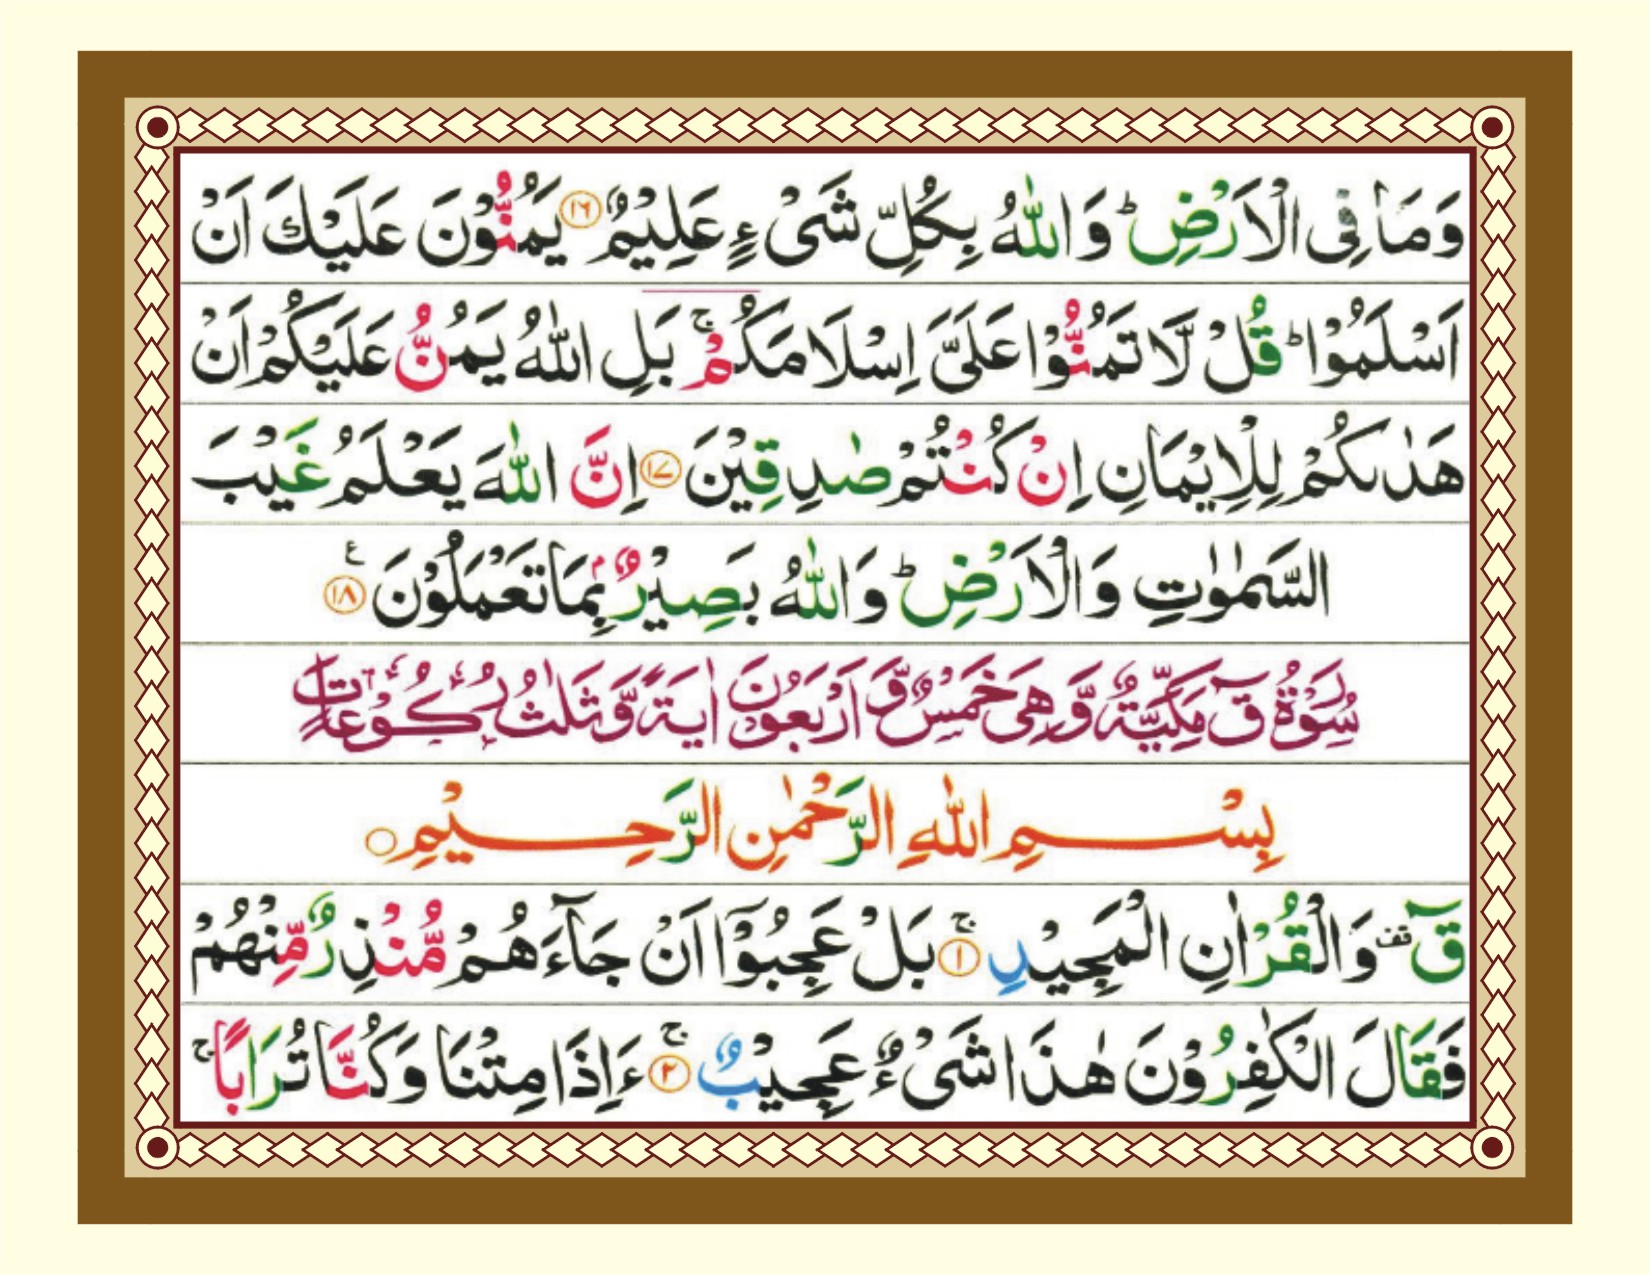 وَمَا فِى الْاَرْضِ ؕ وَاللّٰهُ بِكُلِّ شَىْءٍ عَلِيْمٌ ۝۱۶ يَمُنُّوْنَ عَلَيْكَ اَنْ
اَسْلَمُوْا ؕ قُلْ لَّا تَمُنُّوْا عَلَىَّ اِسْلَامَكُمْ ۚ بَلِ اللّٰهُ يَمُنُّ عَلَيْكُمْ اَنْ
هَدٰىكُمْ لِلْاِيْمَانِ اِنْ كُنْتُمْ صٰدِقِيْنَ ۝۱۷ اِنَّ اللّٰهَ يَعْلَمُ غَيْبَ
السَّمٰوٰتِ وَالْاَرْضِ ؕ وَاللّٰهُ بَصِيْرٌۢ بِمَا تَعْمَلُوْنَ ۝۱۸ ع
سُوْرَةُ قٓ مَكِّيَّةٌ وَّهِىَ خَمْسٌ وَّاَرْبَعُوْنَ اٰيَةً وَّثَلٰثُ رُكُوْعَاتٍ
بِسْمِ اللّٰهِ الرَّحْمٰنِ الرَّحِيْمِ ۝
قٓ ۟ قف وَالْقُرْاٰنِ الْمَجِيْدِ ۝۱ ۚ بَلْ عَجِبُوْۤا اَنْ جَآءَهُمْ مُّنْذِرٌ مِّنْهُمْ
فَقَالَ الْكٰفِرُوْنَ هٰذَا شَىْءٌ عَجِيْبٌ ۝۲ ۚ ءَاِذَا مِتْنَا وَكُنَّا تُرَابًا ۚ